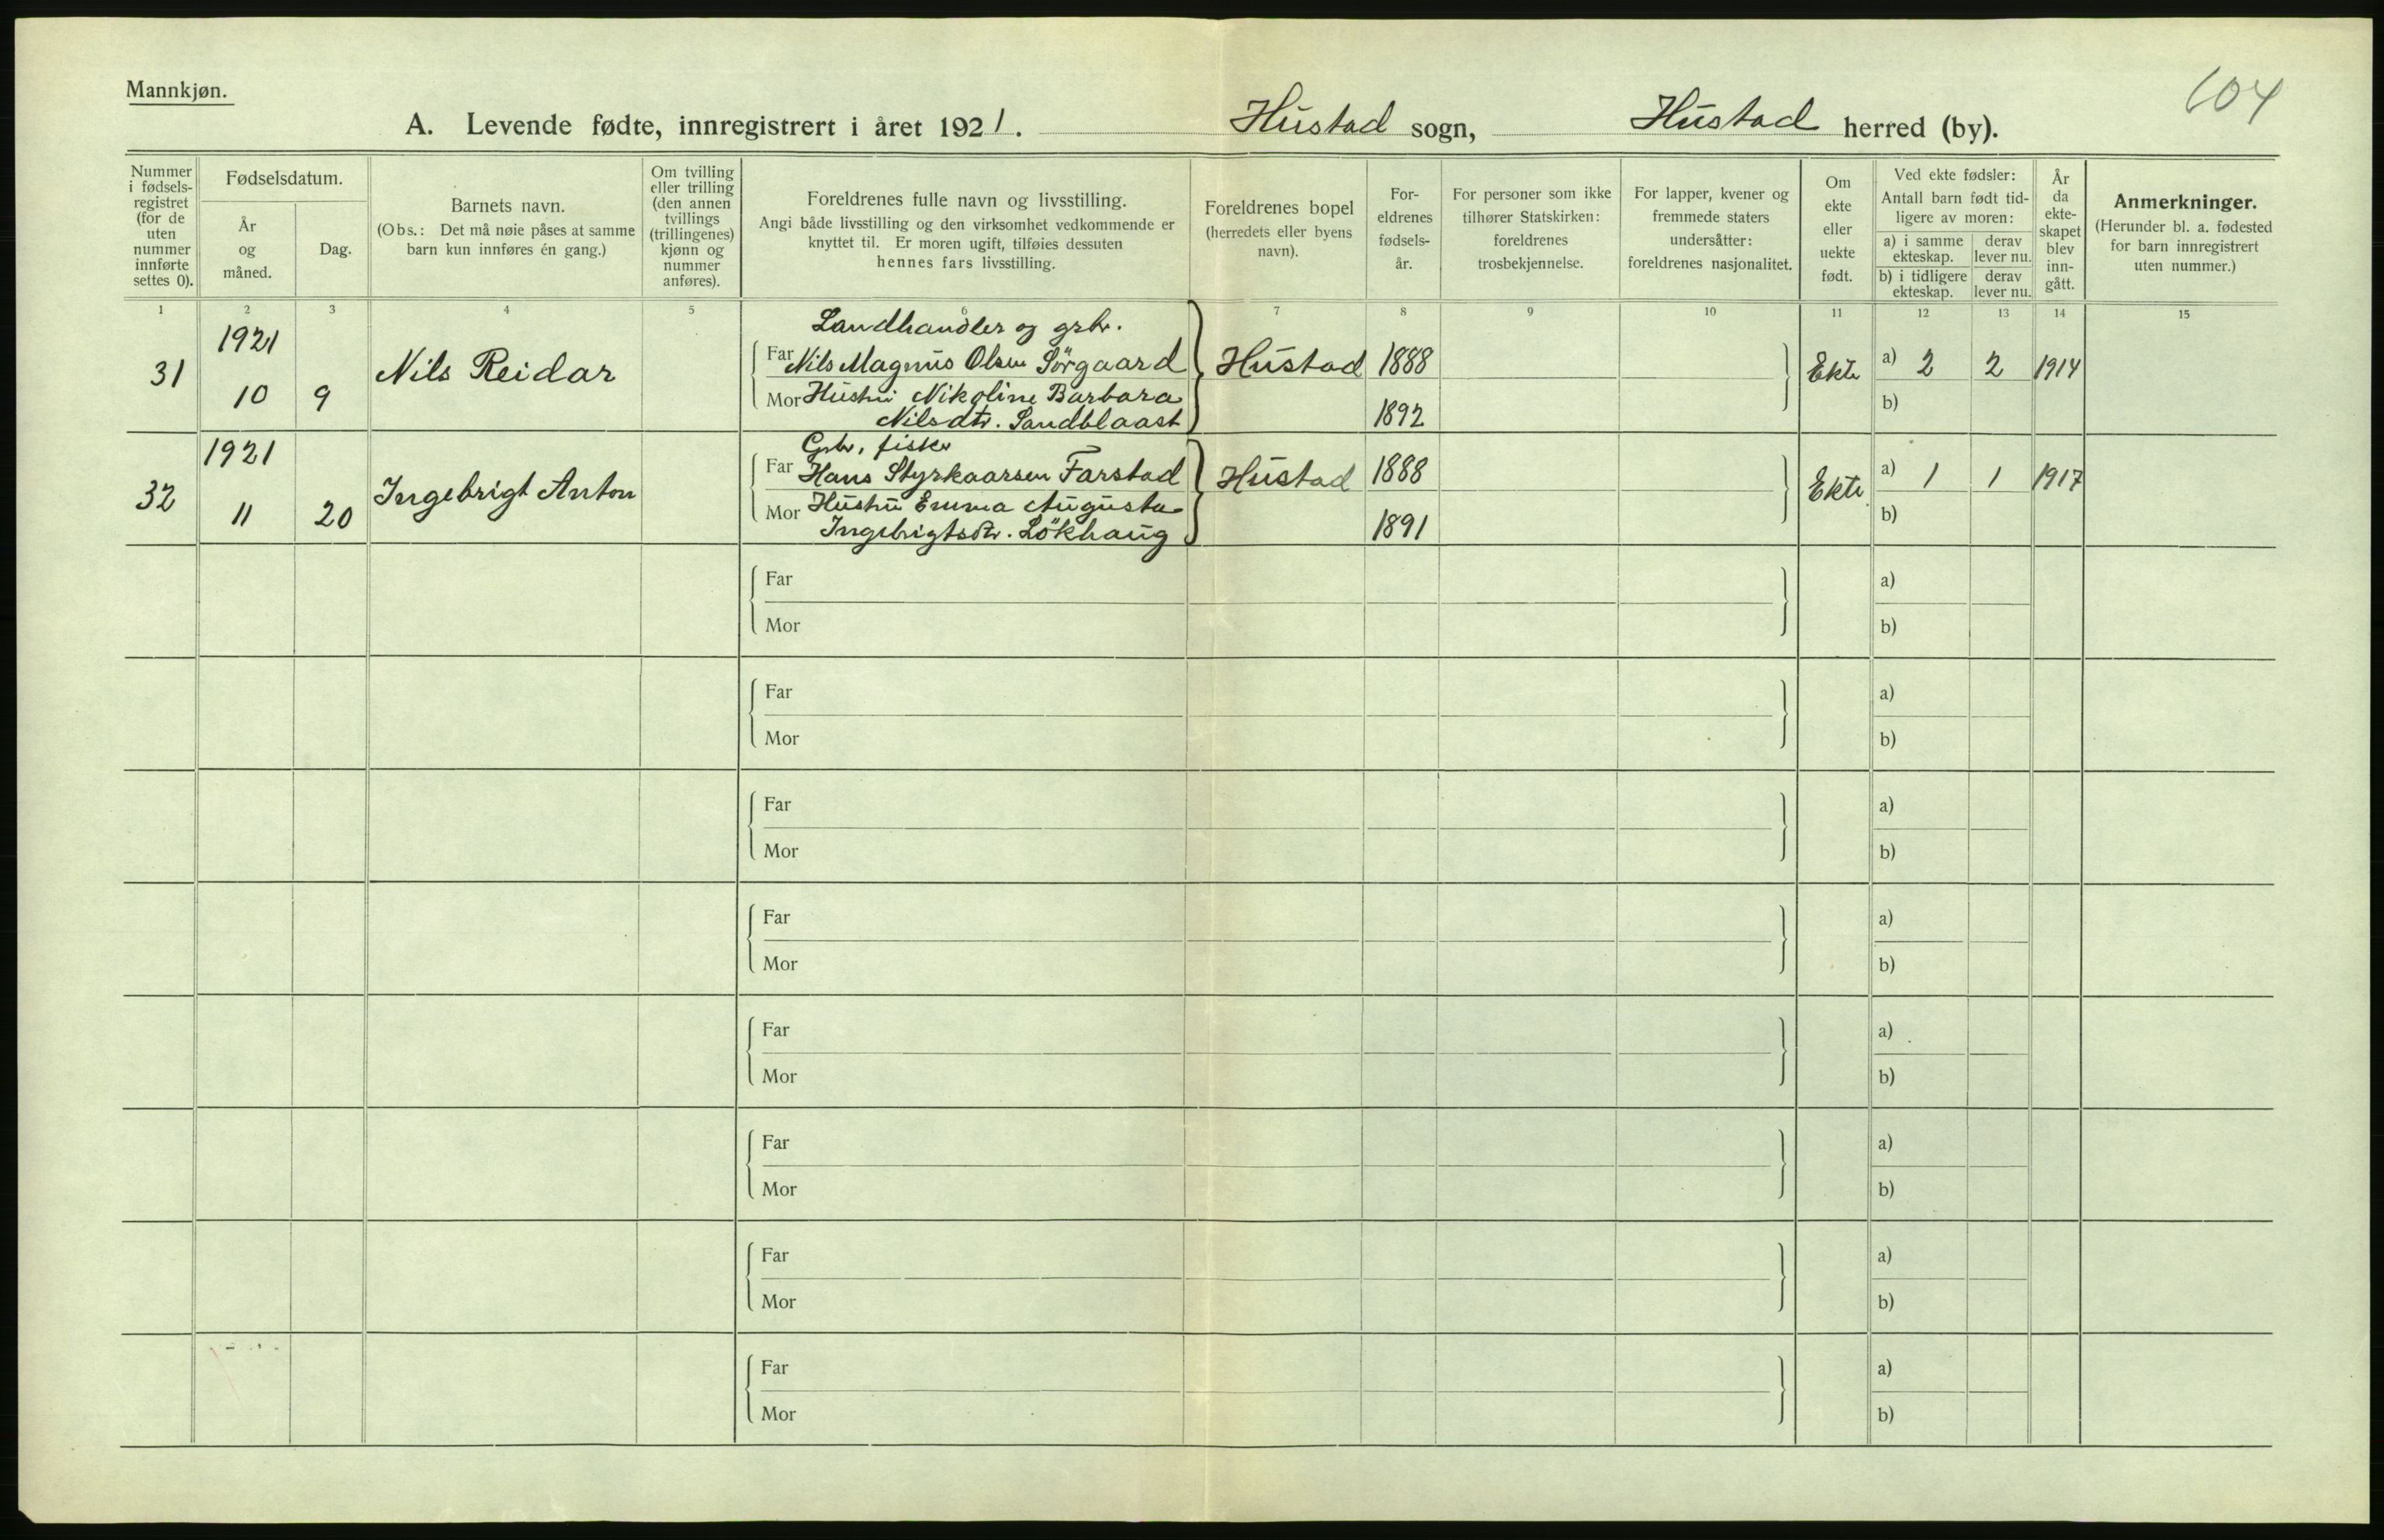 Mannkjøn.
104
A. Levende fødte, innregistrert i året 1921. Hustad sogn, Hustad herred (by).
Nummer
i fødsels-
registret
(for de
uten
nummer
innførte
settes 0).
Fødselsdatum.
År
og
måned.
Dag.
Barnets navn.
(Obs.: Det må nøie påses at samme
barn kun innføres én gang.)
Om tvilling
eller trilling
(den annen
tvillings
(trillingenes)
kjønn og
nummer
anføres).
Foreldrenes fulle navn og livsstilling.
Angi både livsstilling og den virksomhet vedkommende er
knyttet til. Er moren ugift, tilføies dessuten
hennes fars livsstilling.
Foreldrenes bopel
(herredets eller byens
navn).
For-
eldrenes
fødsels-
år.
For personer som ikke
tilhører Statskirken:
foreldrenes
trosbekjennelse.
For lapper, kvener og
fremmede staters
undersåtter:
foreldrenes nasjonalitet.
Om
ekte
eller
uekte
født.
Ved ekte fødsler:
Antall barn født tid-
ligere av moren:
a) i samme
ekteskap.
derav
lever nu.
b) i tidligere
ekteskap.
derav
lever nu.
År
da
ekte-
skapet
blev
inn-
gått.
Anmerkninger.
(Herunder bl. a. fødested
for barn innregistrert
uten nummer.)
1 2 3 4 5 6 7 8 9 10 11 12 13 14 15
31
1921
10 9
Nils Reidar
Landhandler og grbr.
Far Nils Magnus Olsen Sörgaard
Mor Hustru Nikoline Barbara
Nilsdtr. Sandblaast
Hustad
1888
1892
Ekte
a) 2 2 1914
b)
32
1921
11 20
Ingebrigt Anton
Grbr, fisker
Far Hans Styrkaarsen Farstad
Mor Hustru Emma Augusta
Ingebrigtsdtr. Lökhaug
Hustad
1888
1891
Ekte
a) 1 1 1917
b)
Far a)
Mor b)
Far a)
Mor b)
Far a)
Mor b)
Far a)
Mor b)
Far a)
Mor b)
Far a)
Mor b)
Far a)
Mor b)
Far a)
Mor b)